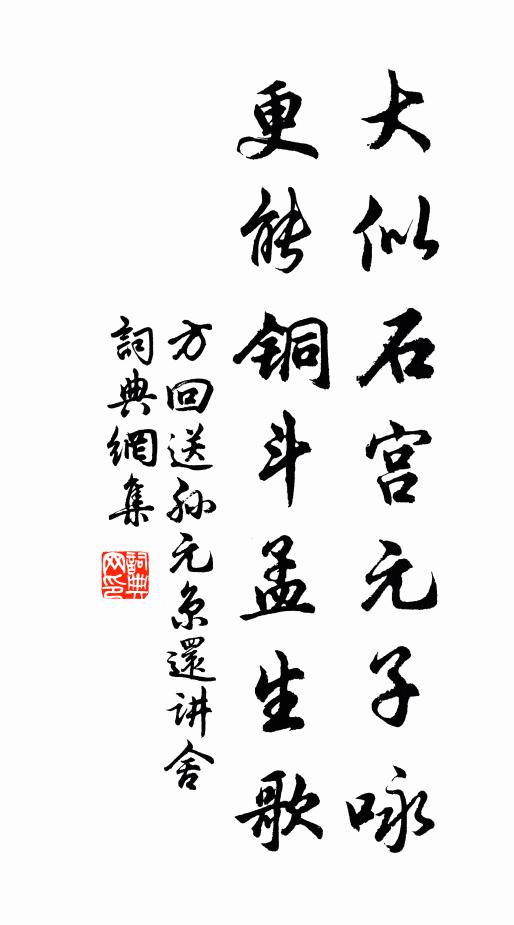 大似石宫元子咏
更能铜斗孟生歌
方回送孙元京還讲舍
詞典網集
詞典
网印